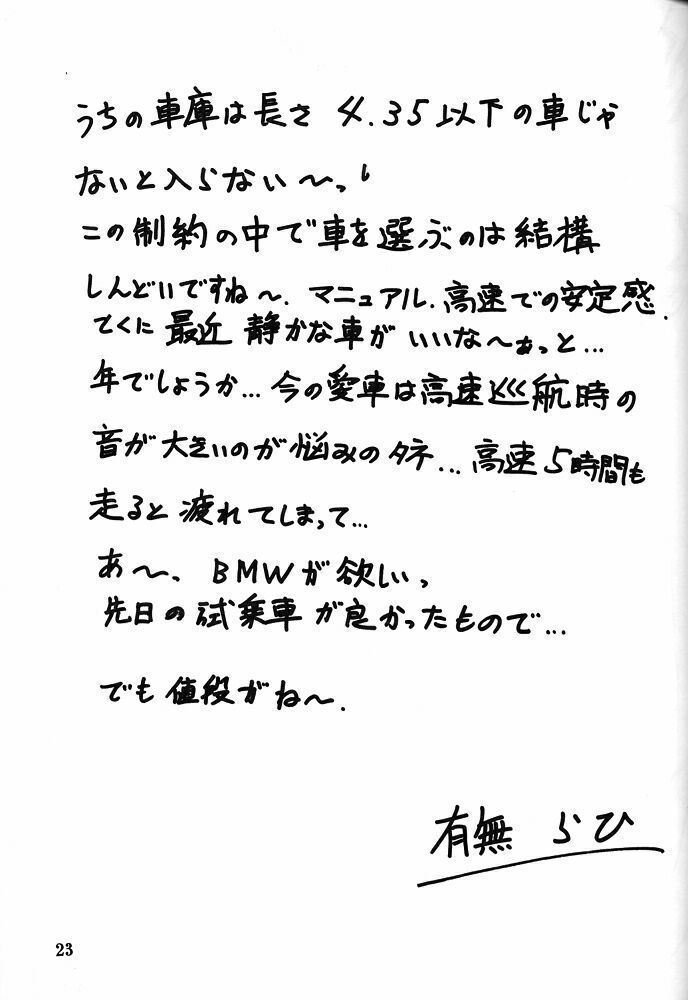 うちの車庫は長さ 4.35以下の車じゃ
ないと入らない〜っ!
この制約の中で車を選ぶのは結構
しんどいですね〜. マニュアル. 高速での安定感.
てくに最近 静かな車が いいな〜ぁっと...
年でしょうか... 今の愛車は高速巡航時の
音が大きいのが悩みのタネ... 高速5時間も
走ると 疲れてしまって...
あ〜、BMWが欲しいっ
先日の試乗車が良かったもので...
でも値段がね〜.
有無 らひ
23